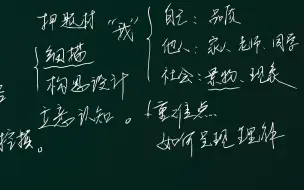 押题材 "我" 自己：品质
他人：家人 老师、同学
社会：景物、现象
细描
构思设计
立意认知。
重难点…
如何呈现 理解
挖掘。